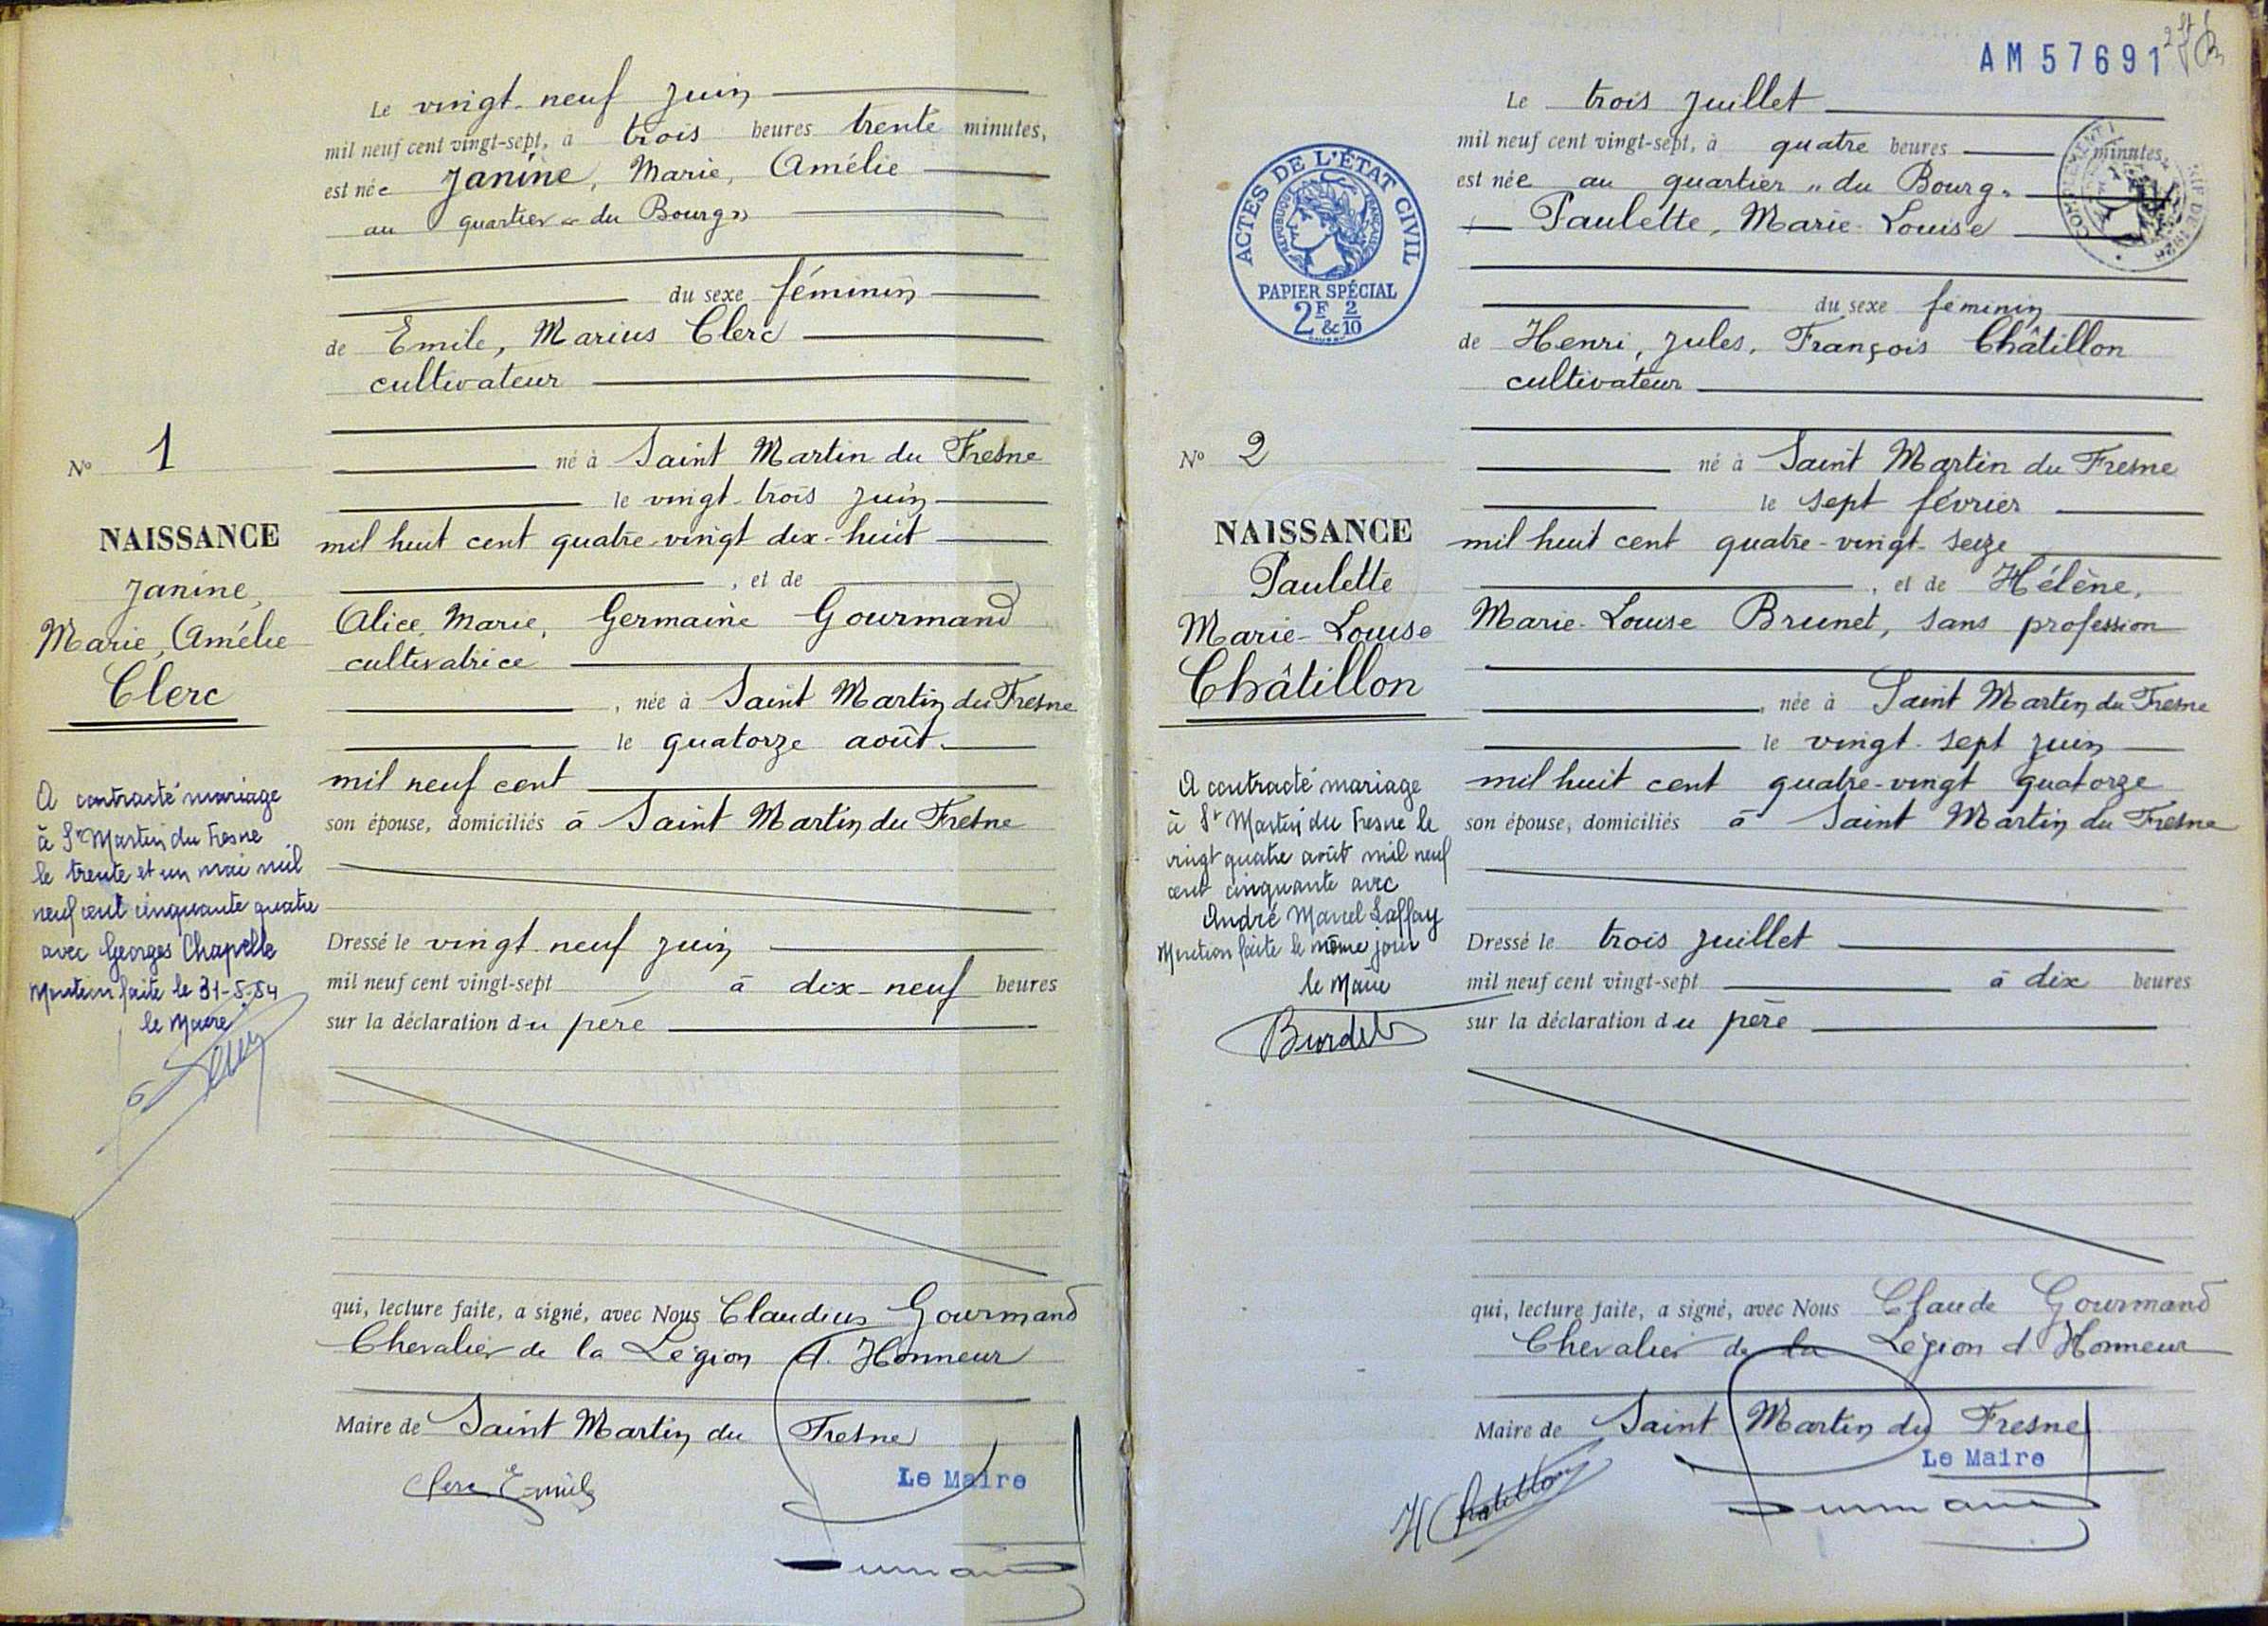 Le vingt-neuf juin
mil neuf cent vingt-sept, à trois heures trente minutes,
est née Janine, Marie, Amélie
au quartier « du Bourg »
du sexe féminin
de Emile, Marius Clerc
cultivateur
né à Saint Martin du Fresne
le vingt-trois juin
mil huit cent quatre-vingt dix-huit
, et de
Alice, Marie, Germaine Gourmand
cultivatrice
, née à Saint Martin du Fresne
le quatorze août
mil neuf cent
son épouse, domiciliés à Saint Martin du Fresne
Dressé le vingt neuf juin
mil neuf cent vingt-sept à dix-neuf heures
sur la déclaration du père
qui, lecture faite, a signé, avec Nous Claudius Gourmand
Chevalier de la Légion d'Honneur
Maire de Saint Martin du Fresne
Le Maire
Clerc Emile
N° 1
NAISSANCE
Janine,
Marie, Amélie
Clerc
A contracté mariage
à St Martin du Fresne
le trente et un mai mil
neuf cent cinquante quatre
avec Georges Chapelle
Mention faite le 31-5-54
le Maire
AM 57691
Le trois juillet
mil neuf cent vingt-sept, à quatre heures minutes,
est née au quartier "du Bourg"
Paulette, Marie-Louise
du sexe féminin
de Henri, Jules, François Châtillon
cultivateur
né à Saint Martin du Fresne
le sept février
mil huit cent quatre-vingt-seize
, et de Hélène,
Marie-Louise Brunet, sans profession
, née à Saint Martin du Fresne
le vingt-sept juin
mil huit cent quatre-vingt quatorze
son épouse, domiciliés à Saint Martin du Fresne
Dressé le trois juillet
mil neuf cent vingt-sept à dix heures
sur la déclaration du père
qui, lecture faite, a signé, avec Nous Claude Gourmand
Chevalier de la Légion d'Honneur
Maire de Saint Martin du Fresne
Le Maire
H Chatillon
ACTES DE L'ÉTAT CIVIL
RÉPUBLIQUE FRANÇAISE
PAPIER SPÉCIAL
2F & 2/10
N° 2
NAISSANCE
Paulette
Marie-Louise
Châtillon
A contracté mariage
à St Martin du Fresne le
vingt quatre août mil neuf
cent cinquante avec
André Marcel Laffay
Mention faite le même jour
le Maire
Burdet